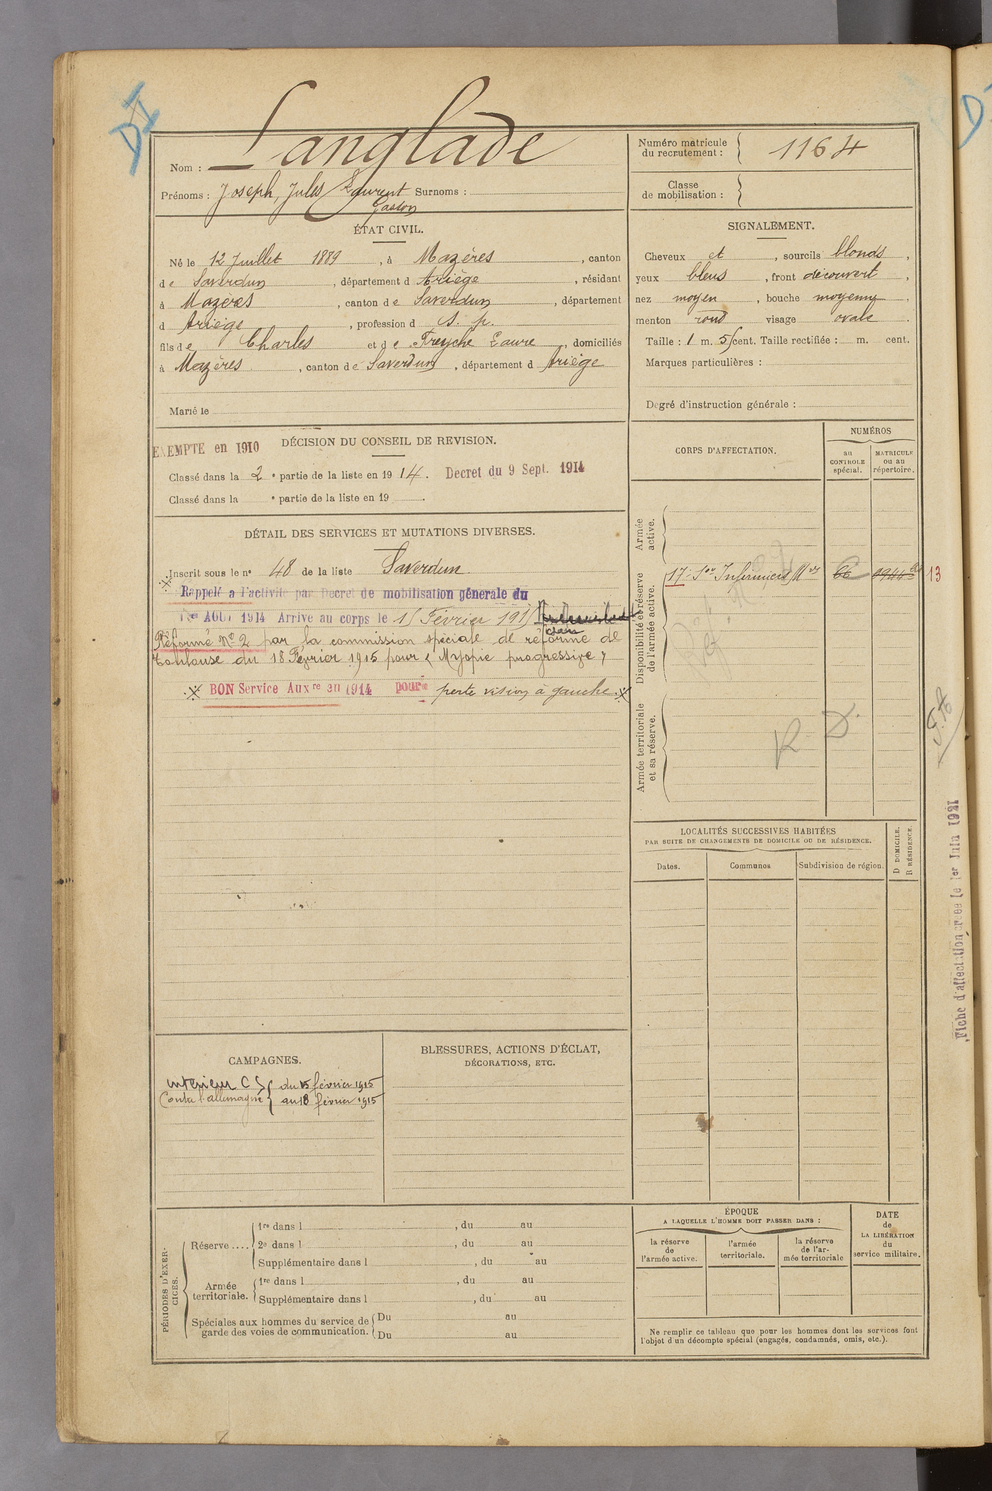 DI
Nom : Langlade
Prénoms : Joseph, Jules Laurent Surnoms :
Gaston
Numéro matricule
du recrutement : 1164
Classe
de mobilisation :
ÉTAT CIVIL.
Né le 12 Juillet 1889, à Mazères, canton
de Saverdun, département d Ariège, résidant
à Mazères, canton de Saverdun, département
d Ariège, profession d s. p.
fils de Charles et de Freyche Laure, domiciliés
à Mazères, canton de Saverdun, département d Ariège
Marié le
SIGNALEMENT.
Cheveux et, sourcils blonds,
yeux bleus, front découvert,
nez moyen, bouche moyenne,
menton rond visage ovale
Taille : 1 m. 5 cent. Taille rectifiée : m. cent.
Marques particulières :
Degré d'instruction générale :
EXEMPTE en 1910
DÉCISION DU CONSEIL DE REVISION.
Classé dans la 2e partie de la liste en 1914. Decret du 9 Sept. 1914
Classé dans la e partie de la liste en 19
DÉTAIL DES SERVICES ET MUTATIONS DIVERSES.
Inscrit sous le n° 48 de la liste Saverdun
Rappelé a l'activité par Decret de mobilisation génerale du
1er AOUT 1914 Arrive au corps le 15 Février 1915
Réformé N° 2 par la commission spéciale de réforme de
Toulouse du 18 Février 1915 pour « Myopie progressive »
BON Service Auxre en 1914 pour perte vision à gauche
CORPS D'AFFECTATION.
NUMÉROS
AU
CONTROLE
spécial.
MATRICULE
ou au
répertoire.
Armée
active.
Disponibilité et réserve
de l'armée active.
17e Son Infirmiers Mres 66 13
Armée territoriale
et sa réserve.
R. D.
LOCALITÉS SUCCESSIVES HABITÉES
PAR SUITE DE CHANGEMENTS DE DOMICILE OU DE RÉSIDENCE.
Dates.
Communes
Subdivision de région.
D DOMICILE.
R RÉSIDENCE.
Fiche d'affectation créée le 1er Juin 1921
CAMPAGNES.
Intérieur C S du 15 février 1915
Contre l'allemagne au 18 février 1915
BLESSURES, ACTIONS D'ÉCLAT,
DÉCORATIONS, ETC.
PÉRIODES D'EXER-
CICES.
Réserve....
1re dans l , du au
2e dans l , du au
Supplémentaire dans l , du au
Armée
territoriale.
1re dans l , du au
Supplémentaire dans l , du au
Spéciales aux hommes du service de
garde des voies de communication.
Du au
Du au
ÉPOQUE
A LAQUELLE L'HOMME DOIT PASSER DANS :
la réserve
de
l'armée active.
l'armée
territoriale.
la réserve
de l'ar-
mée territoriale
DATE
de
LA LIBÉRATION
du
service militaire.
Ne remplir ce tableau que pour les hommes dont les services font
l'objet d'un décompte spécial (engagés, condamnés, omis, etc.).